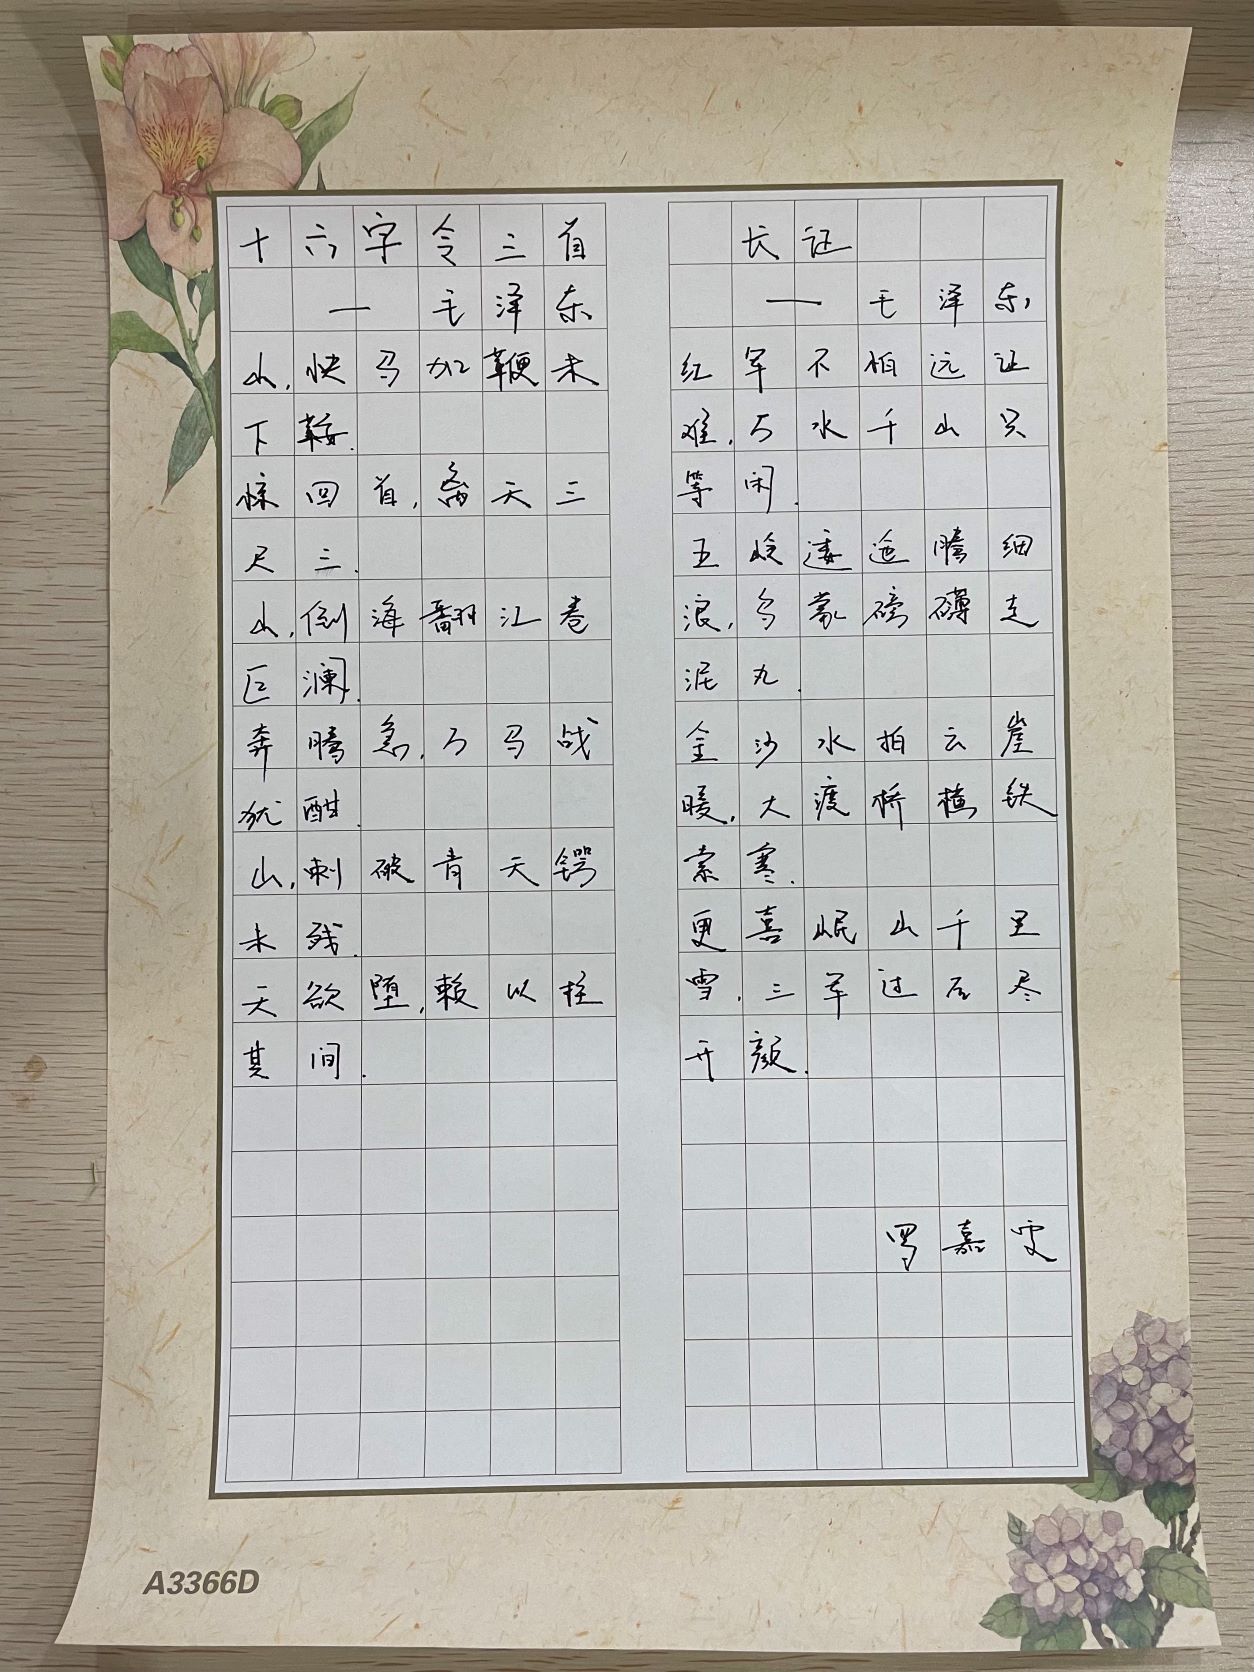 十六字令三首
—毛泽东
山,快马加鞭未
下鞍.
惊回首,离天三
尺三.
山,倒海翻江卷
巨澜.
奔腾急,万马战
犹酣.
山,刺破青天锷
未残.
天欲堕,赖以拄
其间.
长证
—毛泽东
红军不怕远证
难,万水千山只
等闲.
五岭逶迤腾细
浪,乌蒙磅礴走
泥丸.
金沙水拍云崖
暖,大渡桥横铁
索寒.
更喜岷山千里
雪,三军过后尽
开颜.
罗嘉雯
A3366D